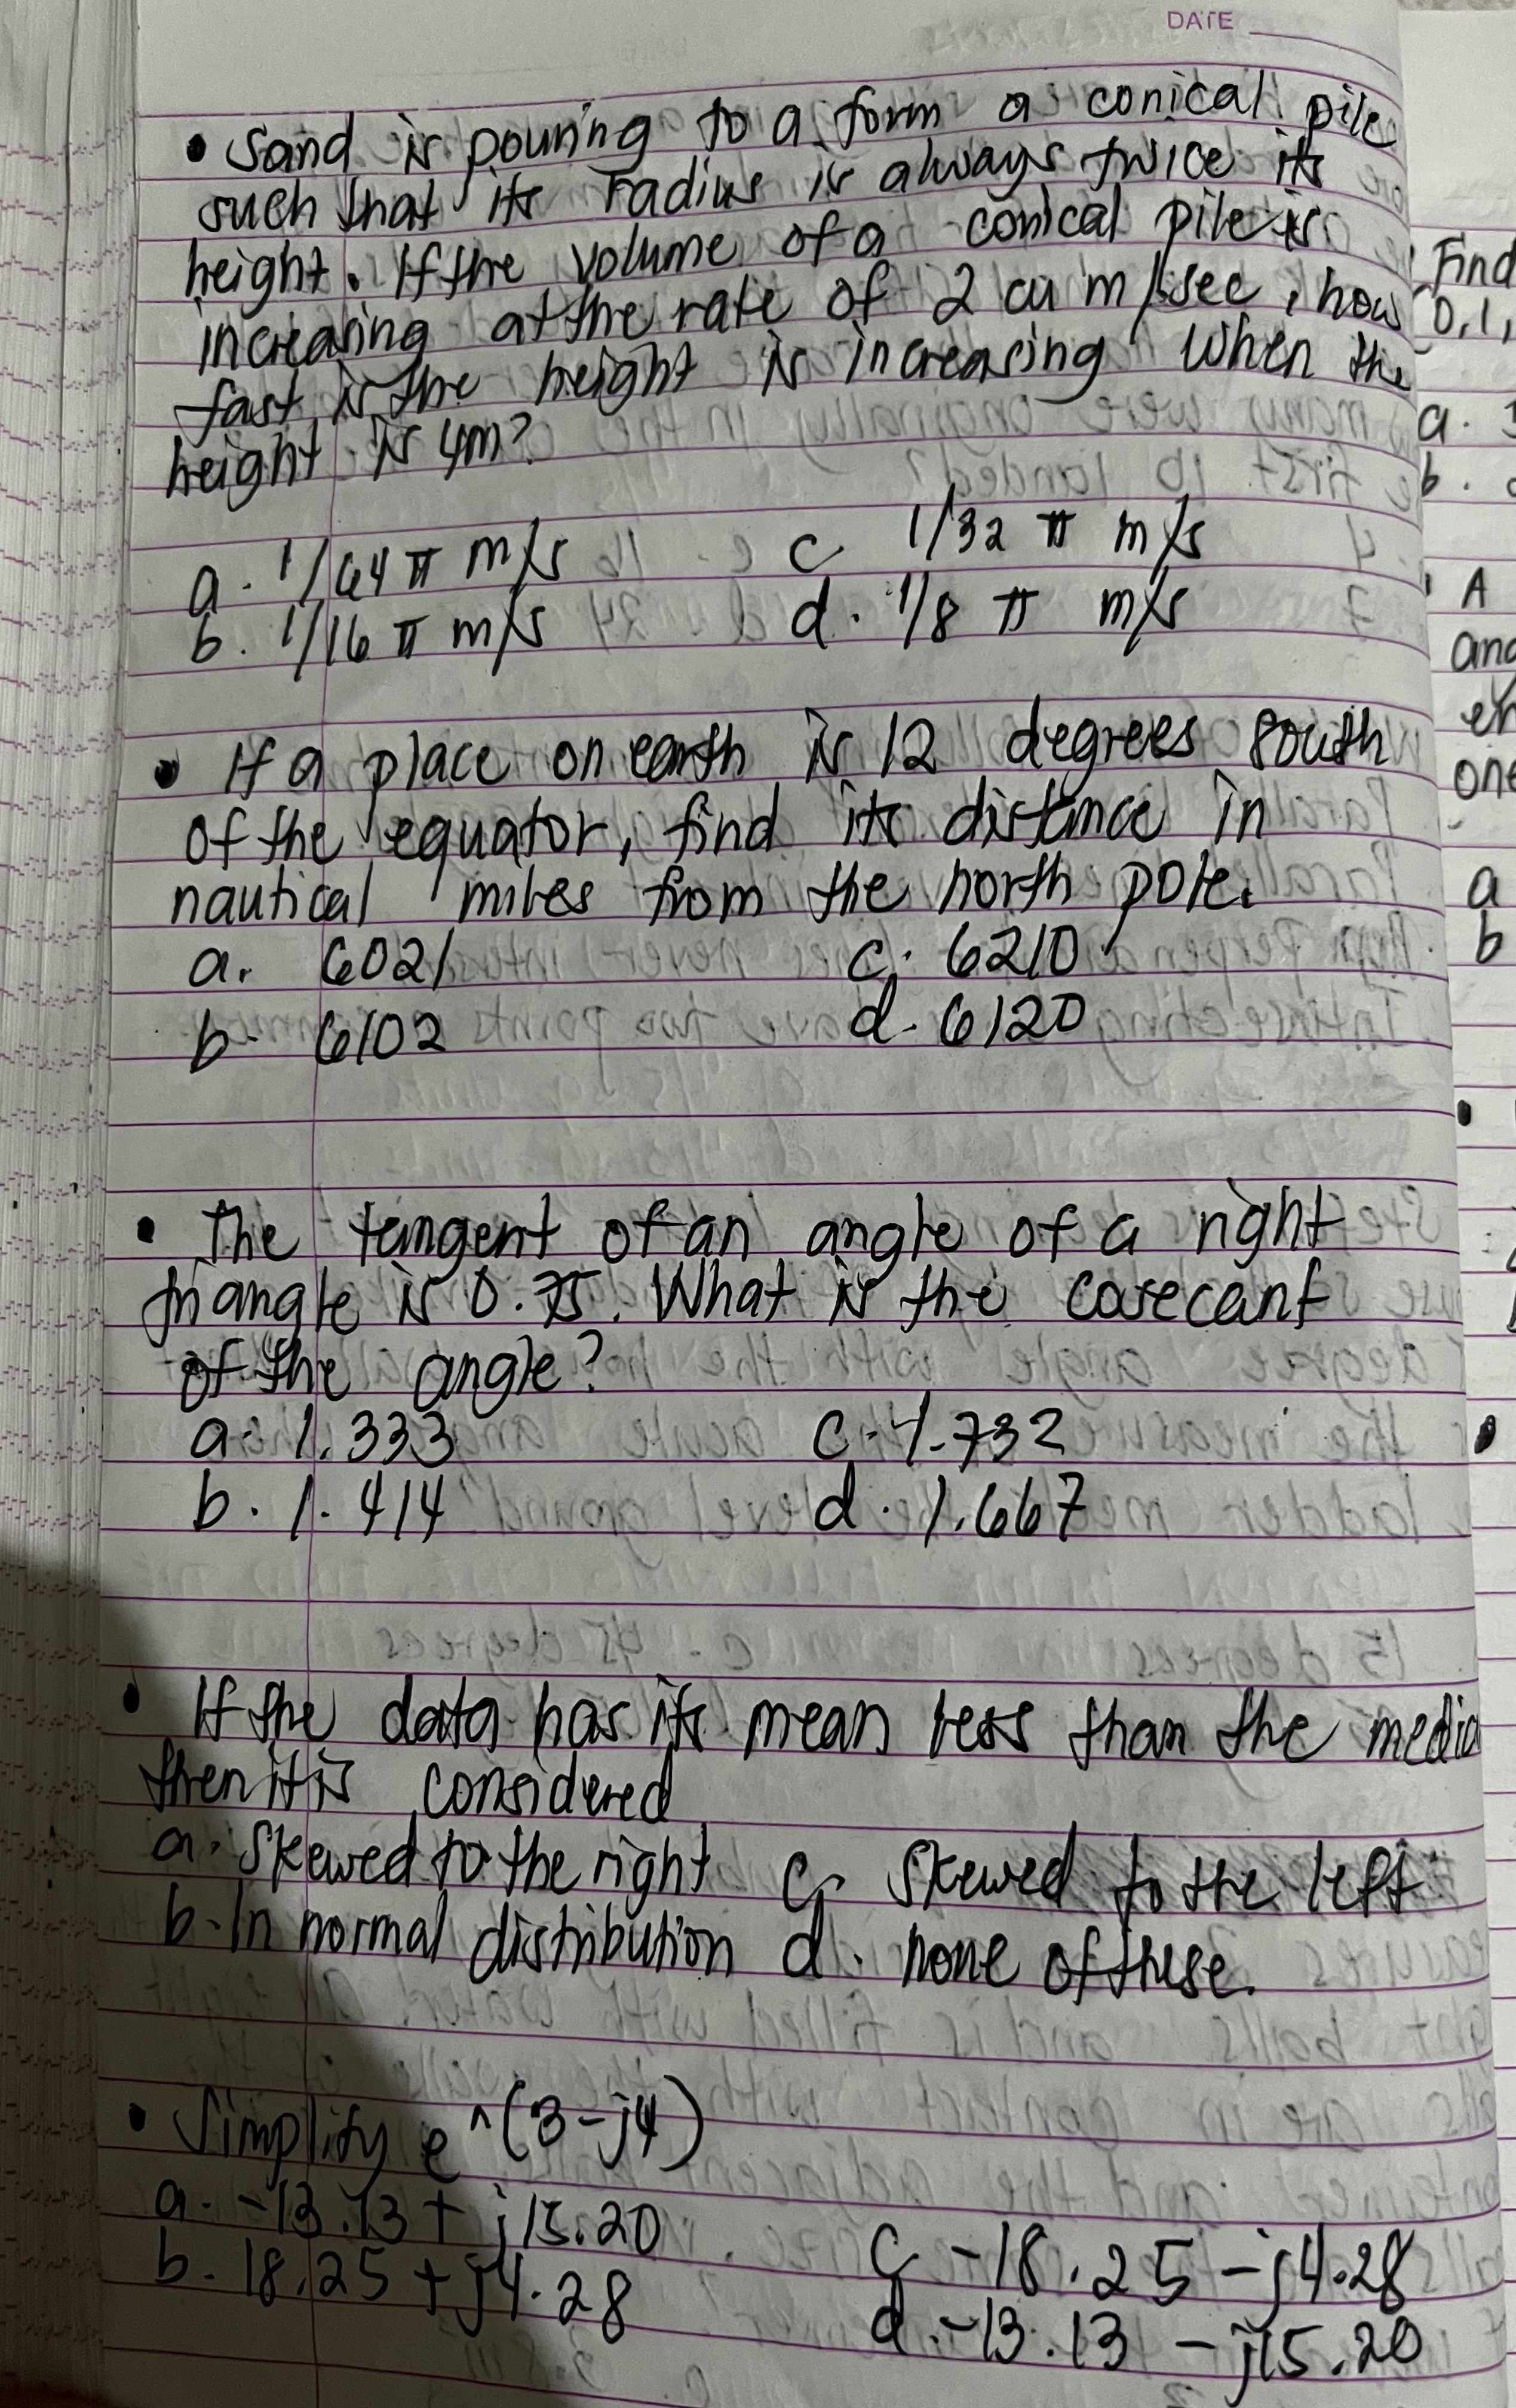 DATE
• Sand is pouring to a form a conical pile
such that its radius is always twice its
height. If the volume of a conical pile is
increasing at the rate of 2 cu m/sec, how
fast is the height is increasing when the
height is 4m?
a. 1/64 π m/s c. 1/32 π m/s
b. 1/16 π m/s d. 1/8 π m/s
• If a place on earth is 12 degrees south
of the equator, find its distance in
nautical miles from the north pole.
a. 6021 c. 6210
b. 6102 d. 6120
• The tangent of an angle of a right
triangle is 0.75. What is the cosecant
of the angle?
a. 1.333 c. 1.732
b. 1.414 d. 1.667
• If the data has its mean less than the media
then it is considered
a. Skewed to the right c. Skewed to the left
b. In normal distribution d. none of these.
• Simplify e^(3-j4)
a. -13.13 + j15.20
b. 18.25 + j4.28 c. -18.25 - j4.28
d. -13.13 - j15.20
Find
0,1,
a.
b.
A
and
one
a
b